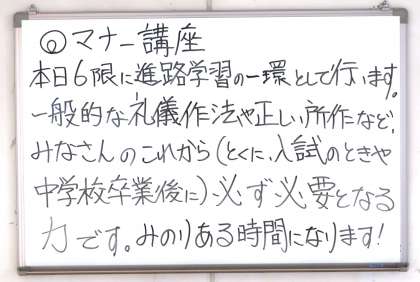 ◎マナー講座
本日6限に進路学習の一環として行います。
一般的な礼儀作法や正しい所作など、
みなさんのこれから(とくに、入試のときや
中学校卒業後に)必ず必要となる
力です。みのりある時間になります!